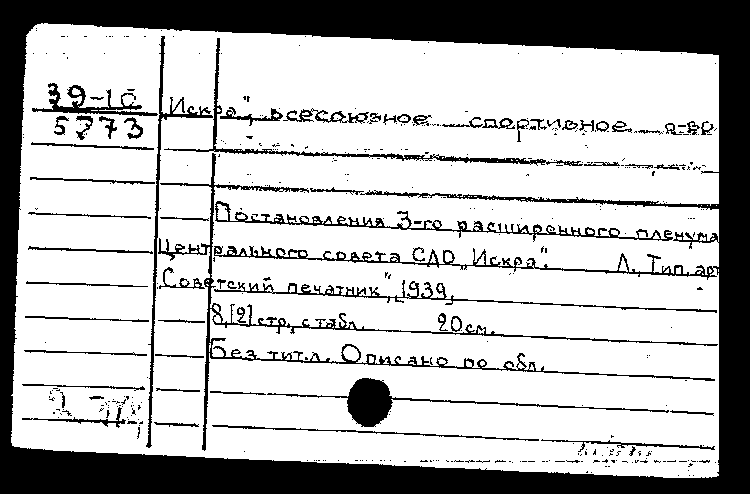 39-10
5273
Искра", всесоюзное спортивное о-во
Постановления 3-го расширенного пленума
Центрального совета СДО „Искра". Л., Тип. арт.
Советский печатник", 1939,
8,[2] стр., с табл. 20см.
Без тит.л. Описано по обл.